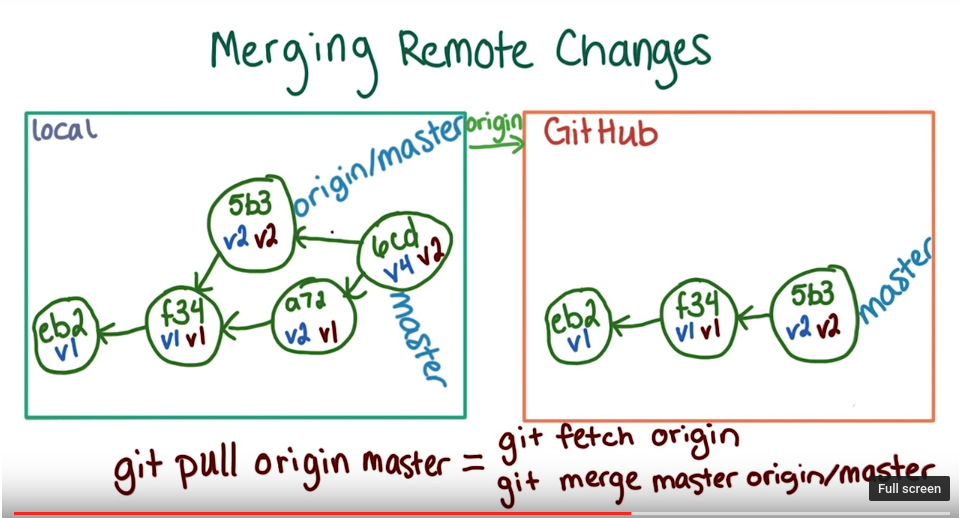 Merging Remote Changes
local
origin/master
origin
GitHub
5b3
v2 v2
6cd
v4 v2
master
a72
v2 v1
f34
v1 v1
eb2
v1
eb2
v1
f34
v1 v1
5b3
v2 v2
master
git pull origin master = git fetch origin
git merge master origin/master
Full screen